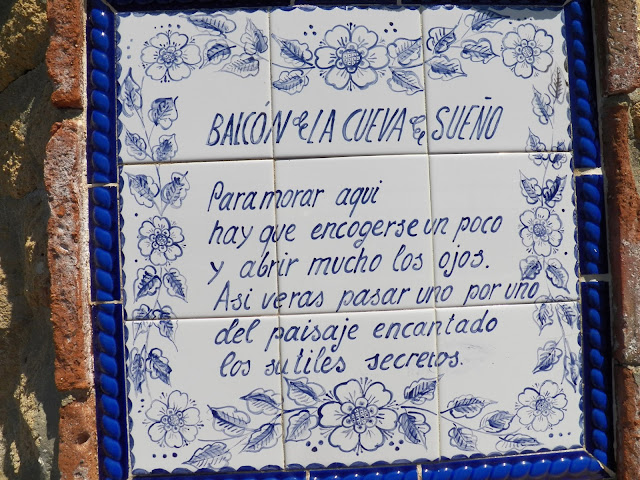 BALCÓN de LA CUEVA de SUEÑO
Para morar aqui
hay que encogerse un poco
y abrir mucho los ojos.
Asi veras pasar uno por uno
del paisaje encantado
los sutiles secretos.